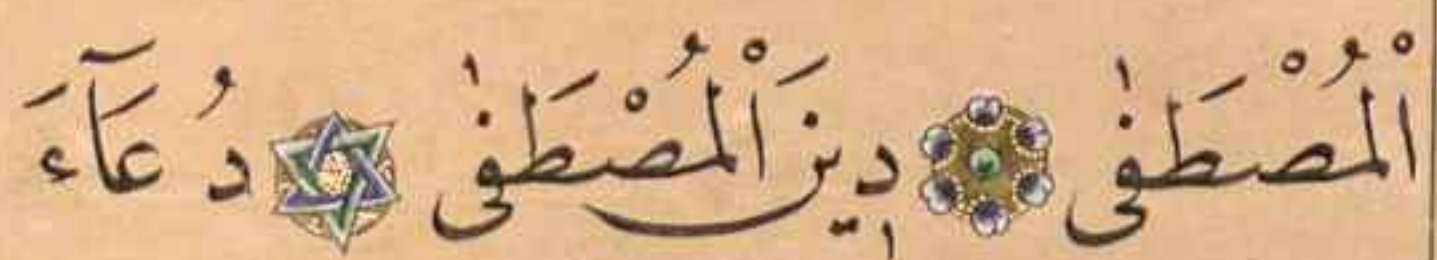 الْمُصْطَفٰى دِينَ الْمُصْطَفٰى دُعَآءَ